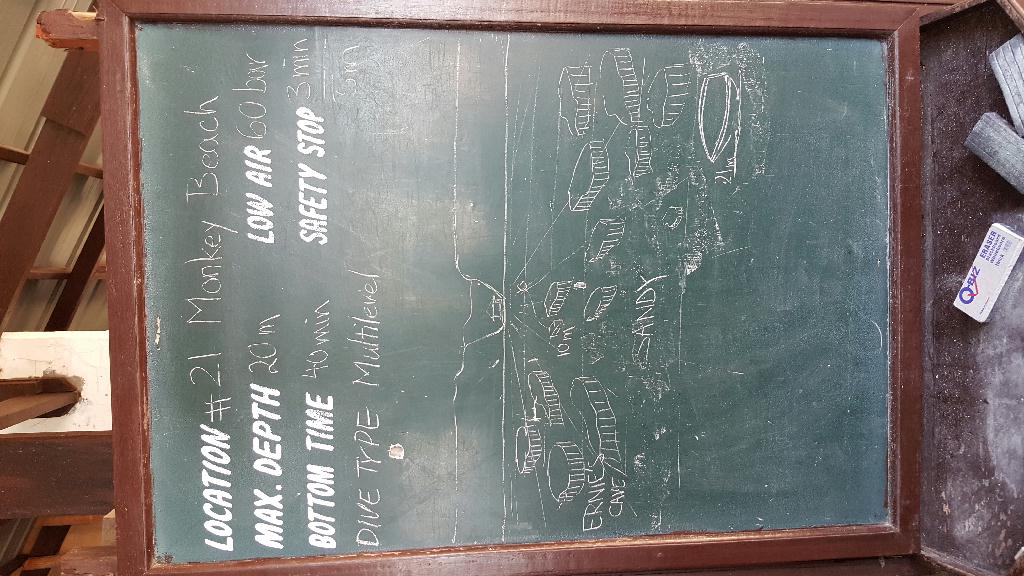 LOCATION #21 Monkey Beach
MAX. DEPTH 20m LOW AIR 60 bar
BOTTOM TIME 40 min SAFETY STOP 3 min
5m
DIVE TYPE Multilevel
10m
21m
SANDY
ERNIE'S
CAVE
QBIZ
ERASER